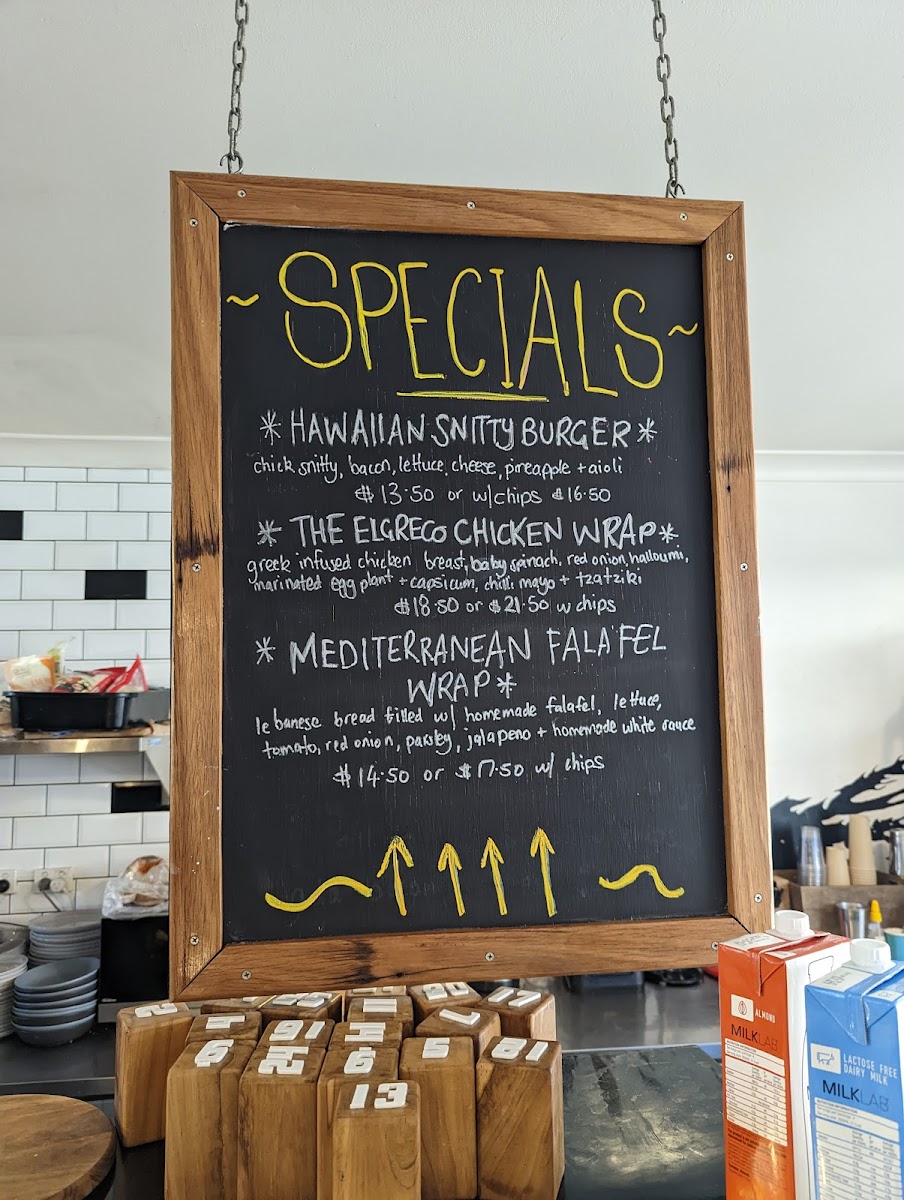 ~ SPECIALS ~
* HAWAIIAN SNITTY BURGER *
chick snitty, bacon, lettuce, cheese, pineapple + aioli
$13.50 or w/chips $16.50
* THE ELGRECO CHICKEN WRAP *
greek infused chicken breast, baby spinach, red onion, halloumi,
marinated egg plant + capsicum, chilli mayo + tzatziki
$18.50 or $21.50 w chips
* MEDITERRANEAN FALAFEL
WRAP *
lebanese bread filled w/ homemade falafel, lettuce,
tomato, red onion, parsley, jalapeno + homemade white sauce
$14.50 or $17.50 w/ chips
ALMOND
MILKLAB
LACTOSE FREE
DAIRY MILK
MILKLAB
13
5